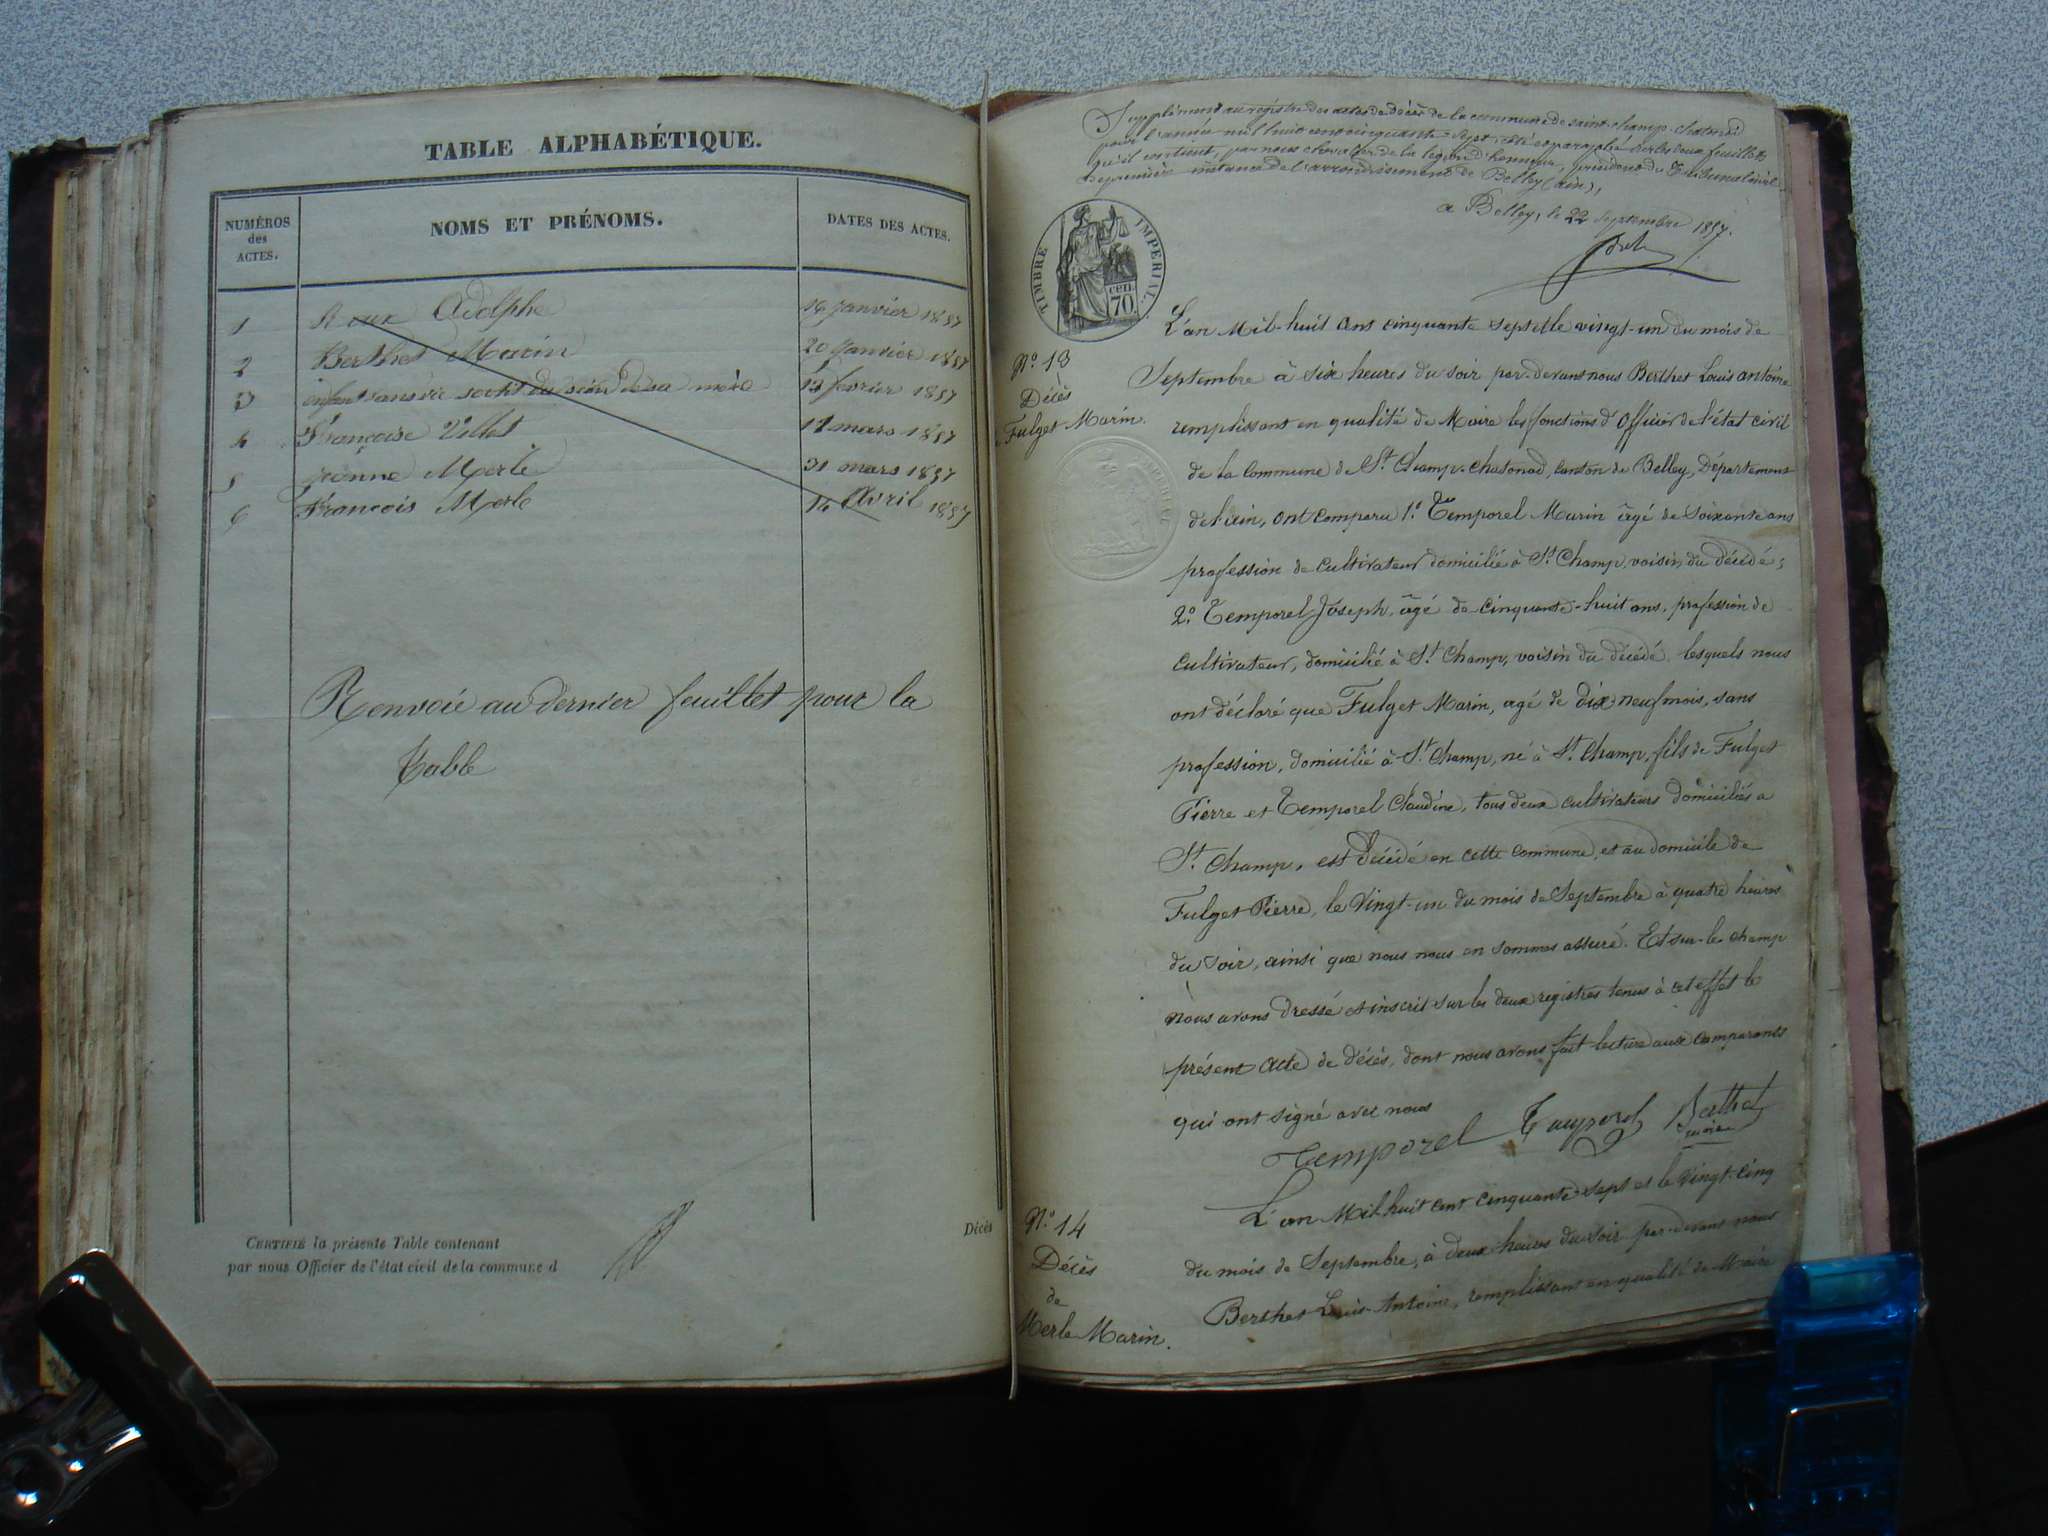 TABLE ALPHABÉTIQUE.
NUMÉROS
des
ACTES.
NOMS ET PRÉNOMS.
DATES DES ACTES.
1 Roux Adolphe 16 janvier 1857
2 Berthet Marin 20 janvier 1857
3 enfant sans vie sortit du sein de sa mère 13 fevrier 1857
4 Françoise Villet 11 mars 1857
5 jeanne Merle 31 mars 1857
6 François Merle 14 Avril 1857
Renvoié au dernier feuillet pour la
Table
Décès
CERTIFIÉ la présente Table contenant
par nous Officier de l'état civil de la commune d
Supplément au registre des actes de décès de la commune de saint-champ-chatonod
pour l'année mil huit cent cinquante-sept, coté et paraphé sur les deux feuillets
qu'il contient, par nous chevalier de la légion d'honneur, président du Tribunal civil
de première instance de l'arrondissement de Belley (ain),
a Belley, le 22 septembre 1857.
TIMBRE IMPÉRIAL.
CEN.
70.
L'an Mil-huit cent cinquante sept et le vingt-un du mois de
No. 13
Décès
Fulget Marin.
Septembre à six heures du soir par-devant nous Berthet Louis antoine
remplissant en qualité de Maire les fonctions d'Officier de l'état civil
de la Commune de St. Champ-Chatonod, canton de Belley, Département
de l'ain, ont comparu 1.o Temporel Marin âgé de soixante ans
profession de cultivateur domicilié à St. Champ, voisin du décédé;
2.o Temporel Joseph, âgé de cinquante-huit ans, profession de
cultivateur, domicilié à St. Champ, voisin du décédé, lesquels nous
ont déclaré que Fulget Marin, agé de dix neuf mois, sans
profession, domicilié à St. Champ, né à St. Champ, fils de Fulget
Pierre et Temporel Claudine, tous deux cultivateurs domiciliés a
St. Champ, est décédé en cette commune, et au domicile de
Fulget Pierre, le vingt-un du mois de Septembre à quatre heures
du soir, ainsi que nous nous en sommes assuré. Et sur-le-champ
nous avons dressé et inscrit sur les deux registres tenus à cet effet le
présent acte de décès, dont nous avons fait lecture aux comparants
qui ont signé avec nous
Temporel Temporel Berthet
maire
No. 14
Décès
de
Merle Marin.
L'an Mil-huit cent cinquante-sept et le vingt-cinq
du mois de Septembre, à deux heures du soir par-devant nous
Berthet Louis-Antoine, remplissant en qualité de Maire